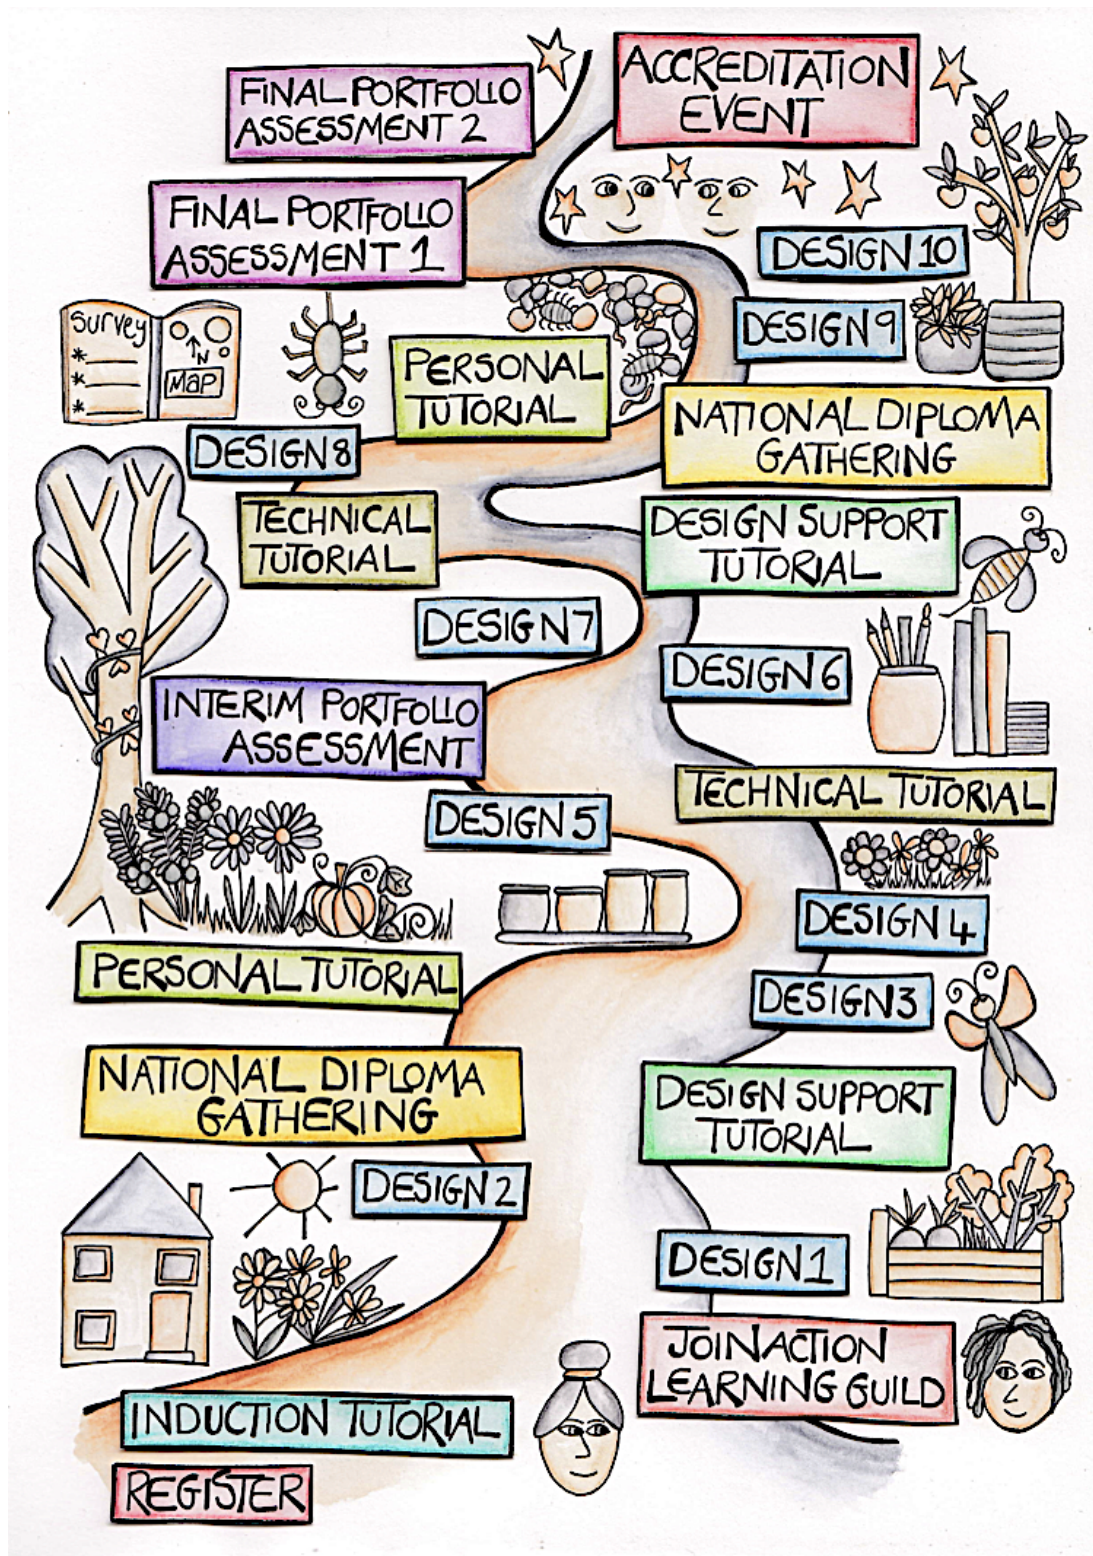 FINAL PORTFOLIO
ASSESSMENT 2
ACCREDITATION
EVENT
FINAL PORTFOLIO
ASSESSMENT 1
DESIGN 10
DESIGN 9
Survey
N
Map
PERSONAL
TUTORIAL
NATIONAL DIPLOMA
GATHERING
DESIGN 8
TECHNICAL
TUTORIAL
DESIGN SUPPORT
TUTORIAL
DESIGN 7
DESIGN 6
INTERIM PORTFOLIO
ASSESSMENT
TECHNICAL TUTORIAL
DESIGN 5
DESIGN 4
PERSONAL TUTORIAL
DESIGN 3
NATIONAL DIPLOMA
GATHERING
DESIGN SUPPORT
TUTORIAL
DESIGN 2
DESIGN 1
JOIN ACTION
LEARNING GUILD
INDUCTION TUTORIAL
REGISTER